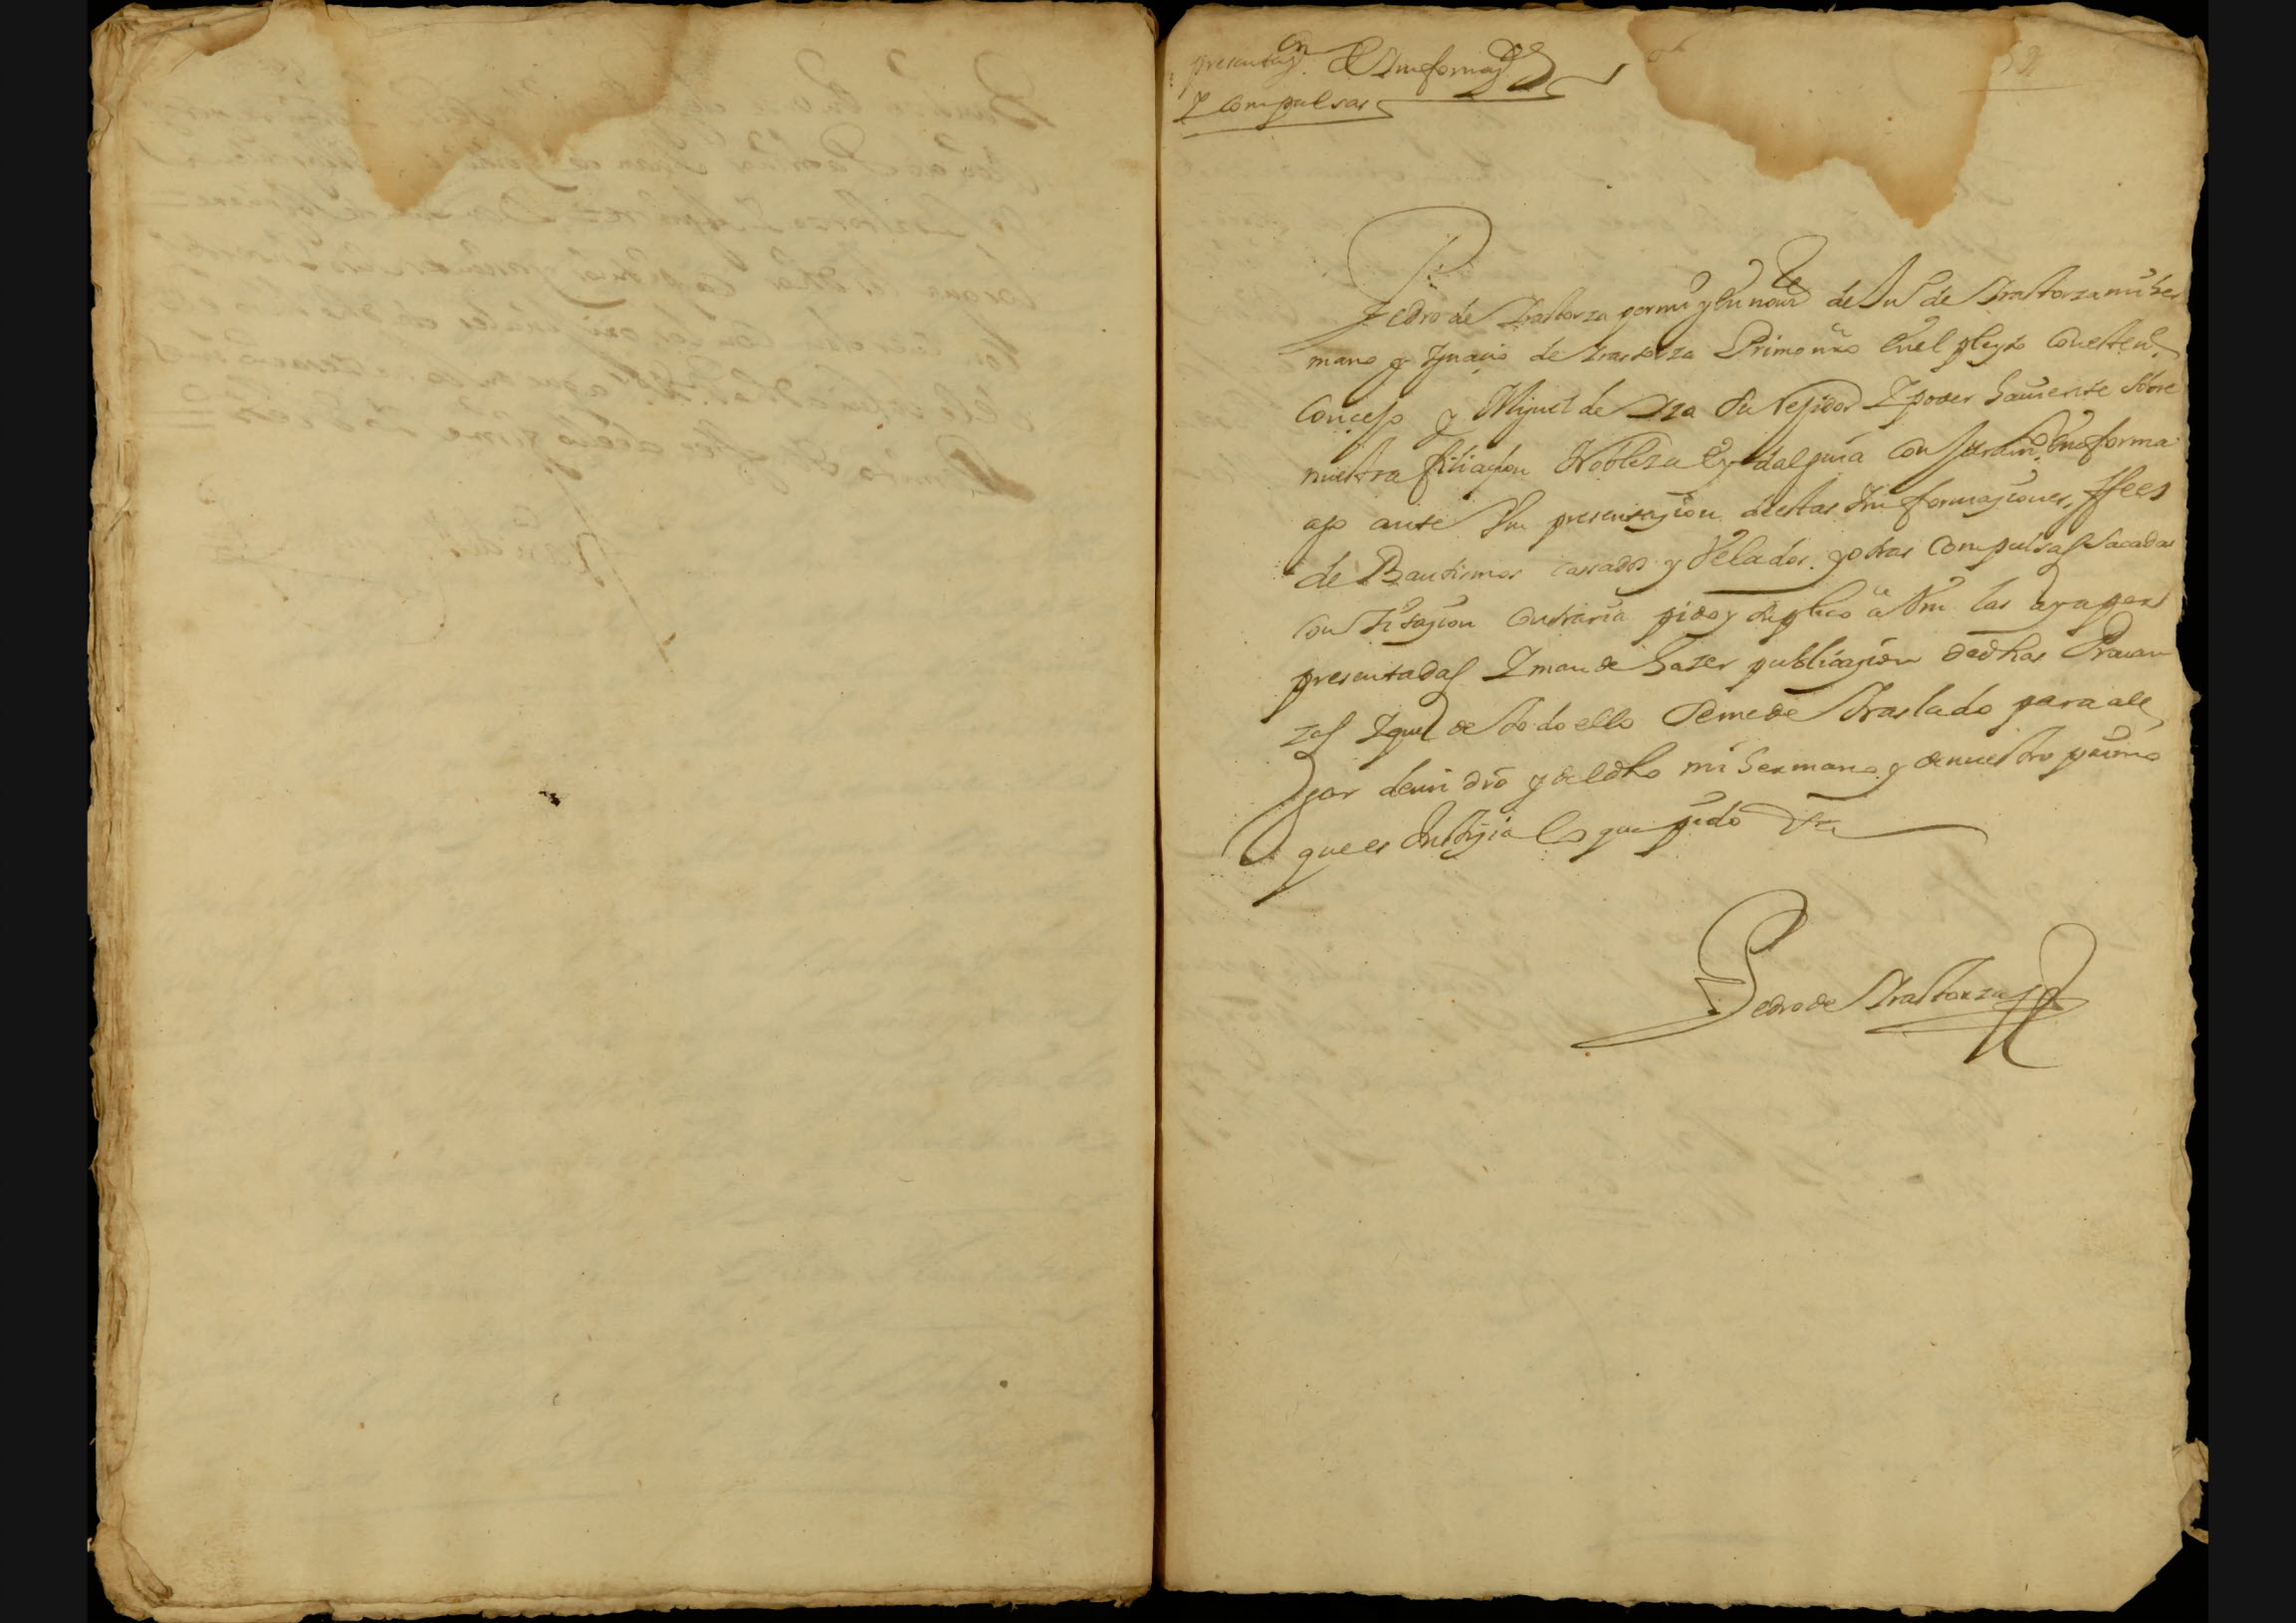 presentaçon de Informaçes
y compulsas
52
Pedro de Yrastorza por mi y en nome de Jun de Yrastorza mi her
mano y Ygnacio de Yrastorza Primo nro en el pleyto con este
Concejo y Miguel de Yza su rejidor y poder hauiente sobre
nuestra filiaçion Nobleza e ydalguia con juramto en forma
ago ante Vm presentaçion de estas Informaçiones, ffees
de Bautismos cassados y Velados y otras compulsas sacadas
con zitaçion contraria pido y suplico a Vm las aya por
presentadas Y mande hazer publicaçion de dhas Prouan
zas Y que de todo ello se me de traslado para ale
gar de mi dro y del dho mi hermano y de nuestro primo
que es Justiçia la que pido Etta
Pedro de Yrastorza